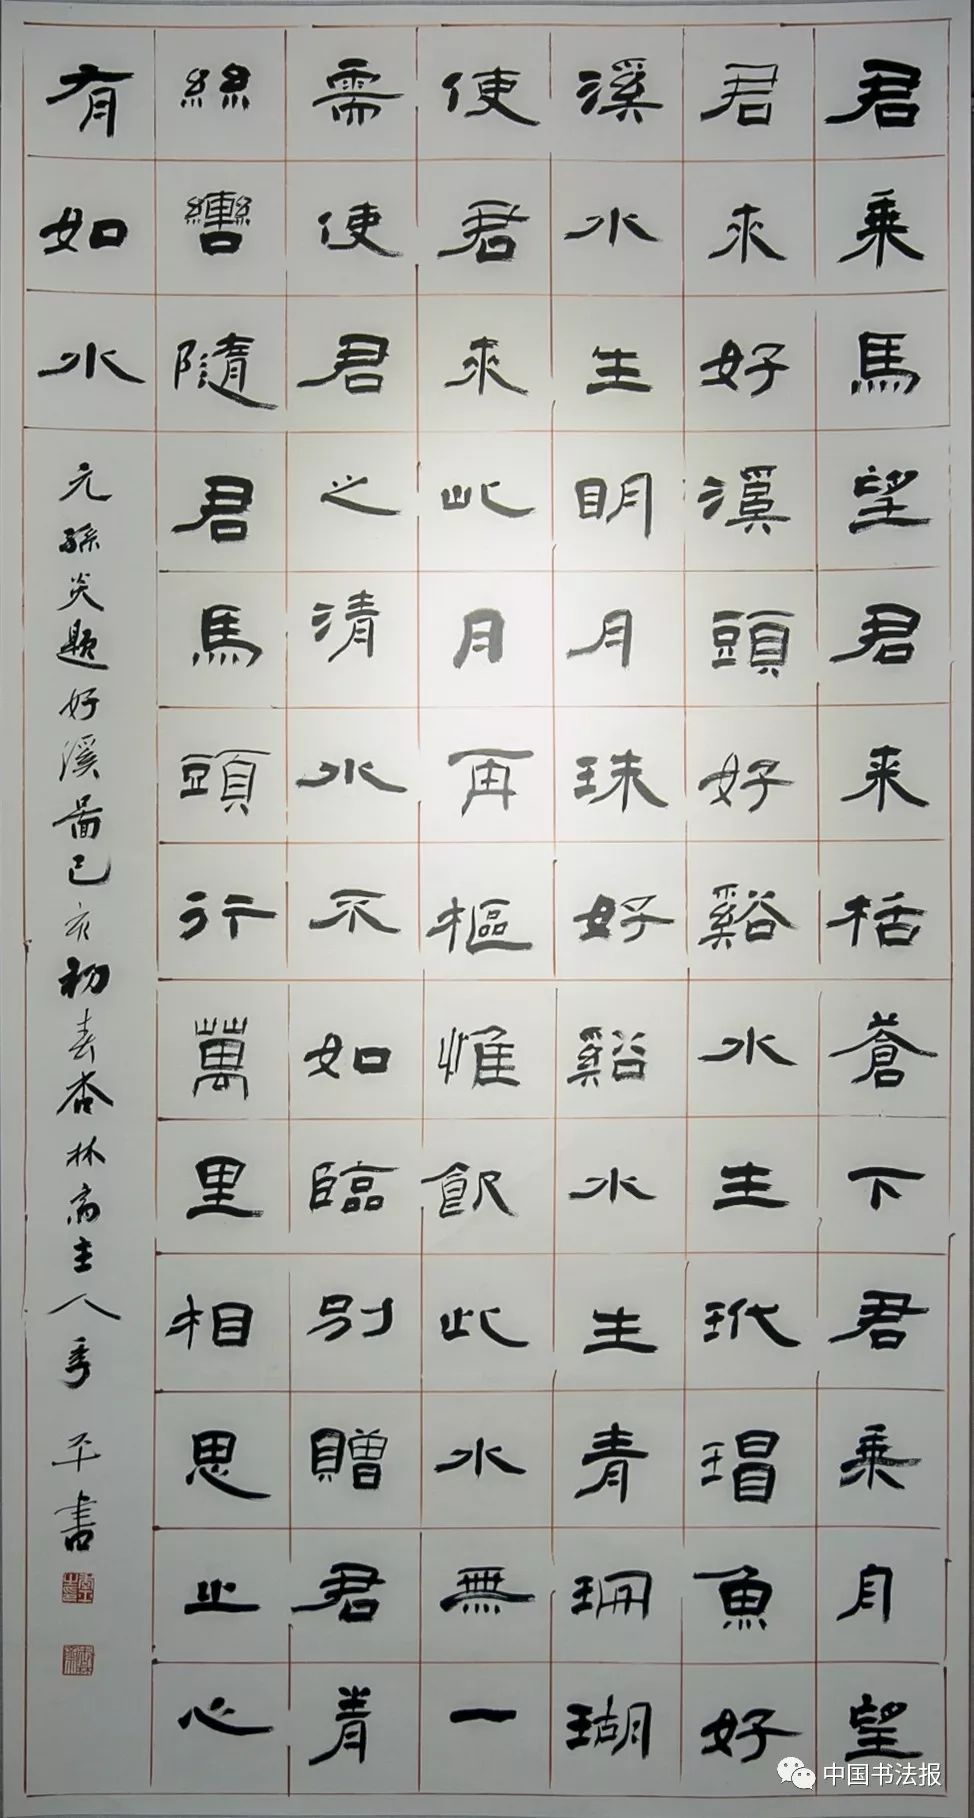 君乘馬望君来栝蒼下君乘月望
君来好溪頭好谿水生玳瑁魚好
溪水生明月珠好谿水生青珊瑚
使君来此月再樞惟飲此水無一
需使君之清水不如臨別贈君青
絲轡隨君馬頭行萬里相思之心
有如水
元孫炎題好溪圖己亥初春杏林齋主人季平書
中国书法报